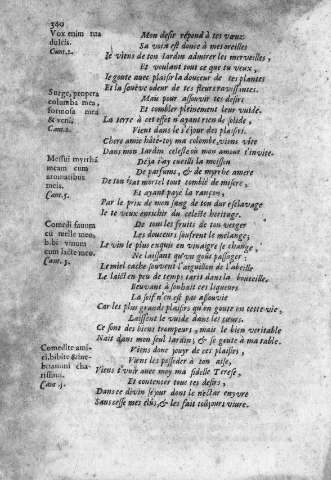 380
Vox enim tua
dulcis.
Cant. 2.
Surge, propera
columba mea,
formosa mea
& veni,
Cant. 2.
Messui myrrhã
meam cum
aromatibus
meis.
Cant. 5.
Comedi fauum
cũ melle meo,
bibi vinum
cum lacte meo.
Cant. 5.
Comedite ami-
ci, bibite & ine-
briamini cha-
rissimi.
Cant. 5.
Mon desir répond à tes vœux
Sa voix est douce à mes oreilles
Je viens de ton Jardin admirer les merveilles,
Et voulant tout ce que tu veux,
Je goute avec plaisir la douceur de tes plantes
Et la souëve odeur de tes fleurs ravissantes.
Mais pour assouvir tes desirs
Et combler pleinement leur vuide.
La terre à cet effet n'ayant rien de solide,
Vient dans le séjour des plaisirs.
Chere amie hâte-toy ma colombe, viens vite
Dans mon Jardin celeste où mon amour t'invite.
Déja j'ay cueilli la moisson
De parfums, & de myrrhe amere
De ton état mortel tout comblé de misere,
Et ayant payé la rançon,
Par le prix de mon sang de ton dur esclavage
Je te veux enrichir du celeste heritage.
De tous les fruits de ton verger
Les douceurs souffrent le mélange;
Le vin le plus exquis en vinaigre se change,
Ne laissant qu'un goût passager;
Le miel cache souvent l'aiguillon de l'abeille
Le laict en peu de temps tarit dans la bouteille.
Beuvant à souhait ces liqueurs
La soif n'en est pas assouvie
Car les plus grands plaisirs qu'on goute en cette vie,
Laissent le vuide dans les cœurs.
Ce sont des biens trompeurs, mais le bien veritable
Naît dans mon seul Jardin, & se goute à ma table.
Viens donc jouyr de ces plaisirs,
Viens les posseder à ton aise,
Viens t'unir avec moy ma fidelle Terese,
Et contenter tous tes desirs,
Dans ce divin séjour dont le nectar enyvre
Sans cesse mes élûs, & les fait toûjours vivre.